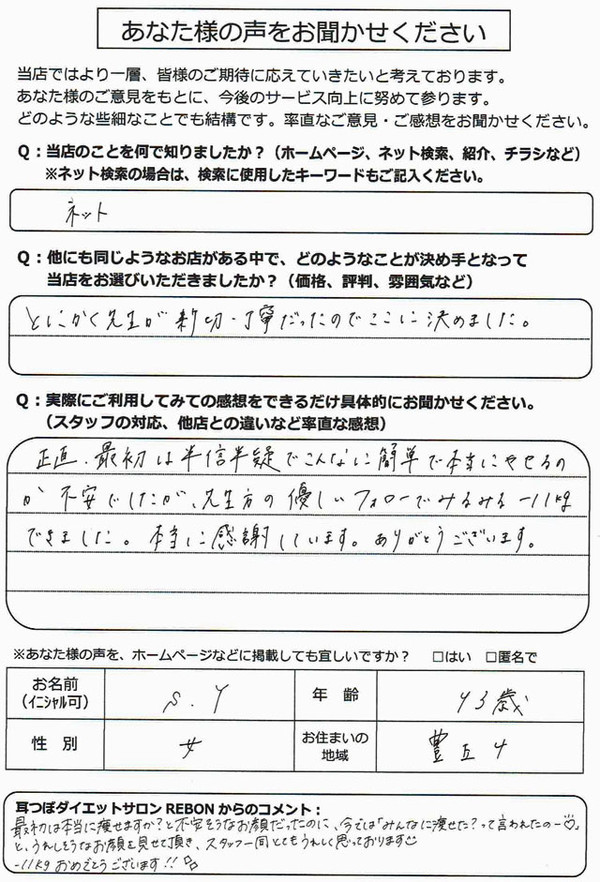 あなた様の声をお聞かせください
当店ではより一層、皆様のご期待に応えていきたいと考えております。
あなた様のご意見をもとに、今後のサービス向上に努めて参ります。
どのような些細なことでも結構です。率直なご意見・ご感想をお聞かせください。
Q：当店のことを何で知りましたか？（ホームページ、ネット検索、紹介、チラシなど）
※ネット検索の場合は、検索に使用したキーワードもご記入ください。
ネット
Q：他にも同じようなお店がある中で、どのようなことが決め手となって
当店をお選びいただきましたか？（価格、評判、雰囲気など）
とにかく先生が親切・丁寧だったのでここに決めました。
Q：実際にご利用してみての感想をできるだけ具体的にお聞かせください。
（スタッフの対応、他店との違いなど率直な感想）
正直、最初は半信半疑でこんなに簡単で本当にやせるの
か不安でしたが、先生方の優しいフォローでみるみる－11kg
できました。本当に感謝しています。ありがとうございます。
※あなた様の声を、ホームページなどに掲載しても宜しいですか？ □はい □匿名で
お名前 S.Y 年齢 43歳
（イニシャル可）
性別 女 お住まいの地域 豊丘
耳つぼダイエットサロン REBONからのコメント：
最初は本当に痩せますか？と不安そうなお顔だったのに、今では「みんなに痩せた？って言われたのー♡」
と、うれしそうなお顔を見せて頂き、スタッフ一同とてもうれしく思っております☺
－11kgおめでとうございます!!